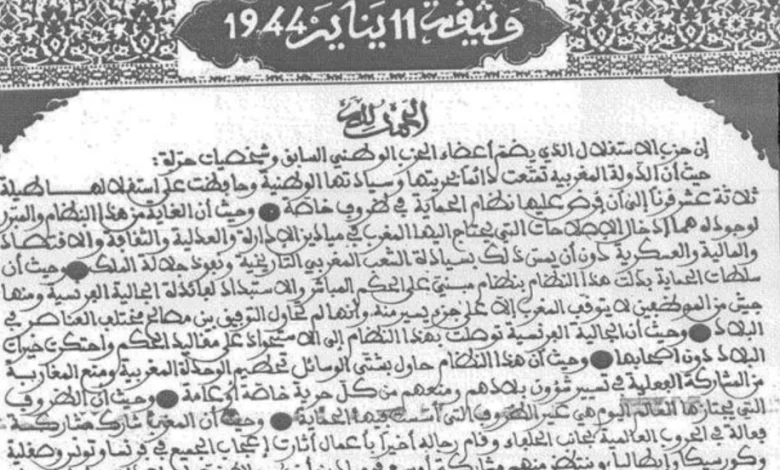 وثيقة 11 يناير 1944
الحمد لله
إن حزب الاستقلال الذي يضم أعضاء الحزب الوطني السابق وشخصيات حرة:
حيث أن الدولة المغربية تمتعت دائما بحريتها وسيادتها الوطنية وحافظت على استقلالها طيلة
ثلاثة عشر قرنا إلى أن فرض عليها نظام الحماية في ظروف خاصة • وحيث أن الغاية من هذا النظام والمبرر
لوجوده هما إدخال الإصلاحات التي يحتاج اليها المغرب في ميادين الإدارة والعدلية والثقافة والاقتصاد
والمالية والعسكرية دون أن يمس ذلك بسيادة الشعب المغربي التاريخية ونفوذ جلالة الملك • وحيث أن
سلطات الحماية بدلت هذا النظام بنظام مبني على الحكم المباشر والاستبداد لفائدة الجالية الفرنسية ومنها
جيش من الموظفين لا يتوقف المغرب إلا على جزء يسير منه وأنها لم تحاول التوفيق بين مصالح مختلف العناصر في
البلاد • وحيث أن الجالية الفرنسية توصلت بهذا النظام إلى الاستحواذ على مقاليد الحكم واحتكرت خيرات
البلاد دون أصحابها • وحيث أن هذا النظام حاول بشتى الوسائل تحطيم الوحدة المغربية ومنع المغاربة
من المشاركة الفعلية في تسيير شؤون بلادهم ومنعهم من كل حرية خاصة أو عامة • وحيث أن الظروف
التي يجتازها العالم اليوم هي غير الظروف التي أسست فيها الحماية • وحيث أن المغرب شارك مشاركة
فعالة في الحروب العالمية بجانب الحلفاء وقام رجاله أخيرا بأعمال أثارت إعجاب الجميع في فرنسا وتونس وصقلية
وكورسيكا وإيطاليا وينتظر منهم مشاركة أوسع في